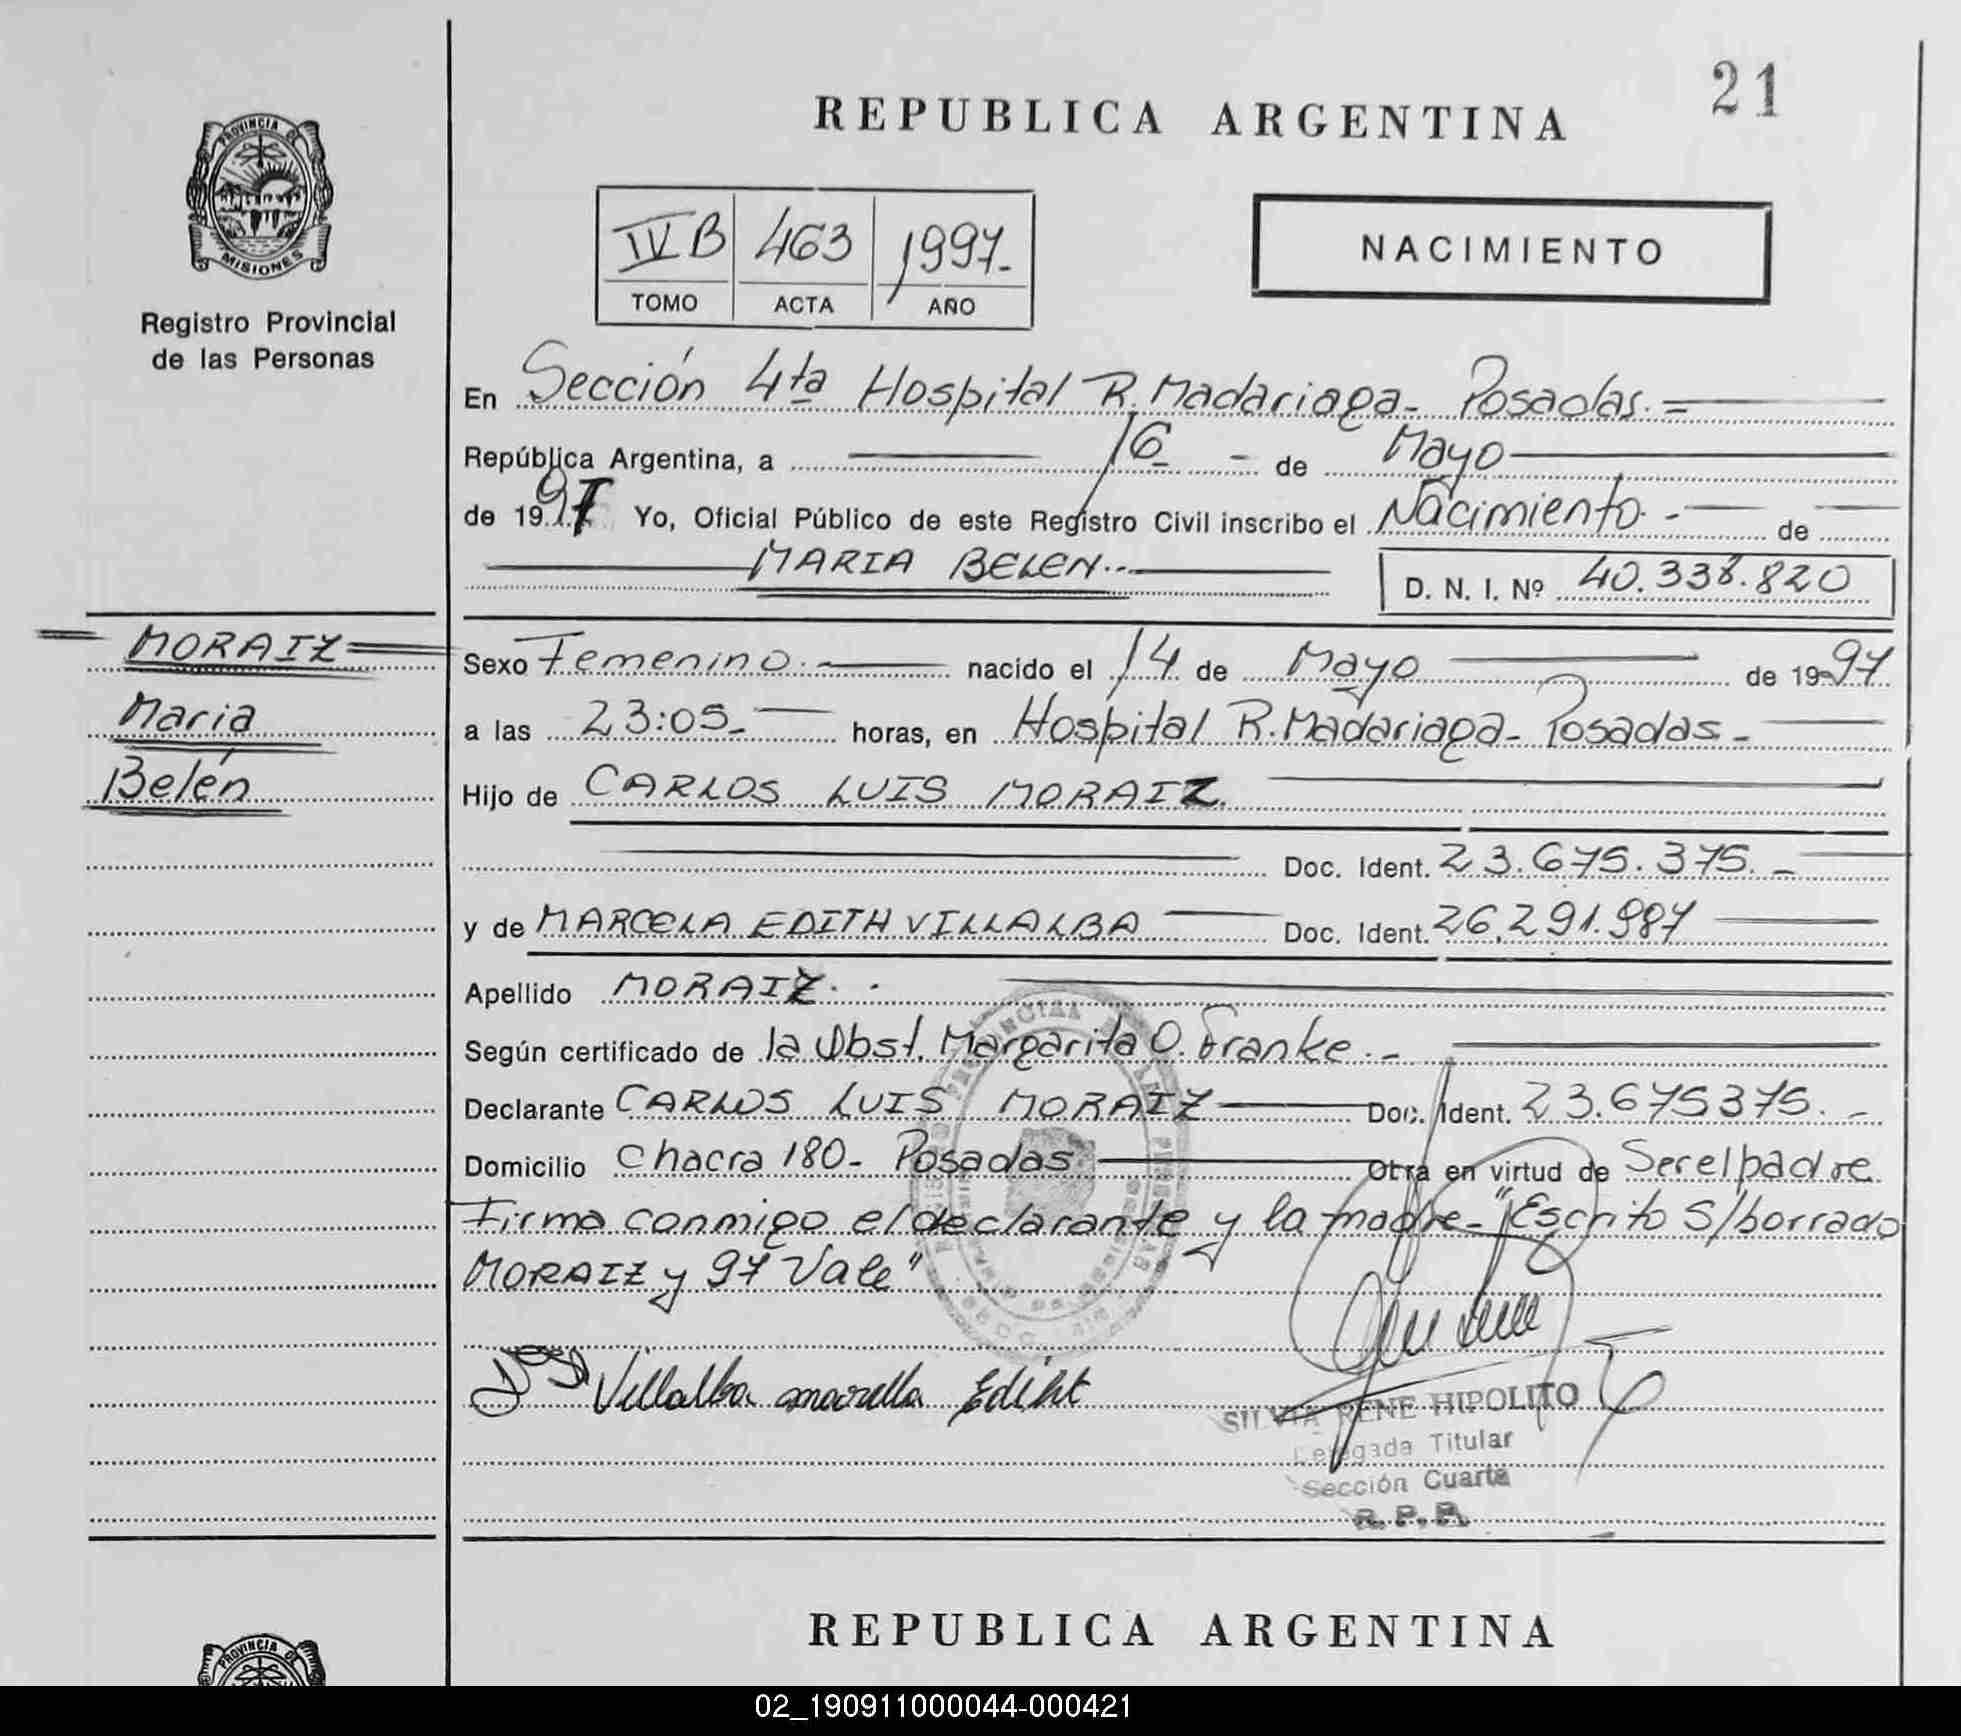 21
REPUBLICA ARGENTINA
PROVINCIA DE
MISIONES
Registro Provincial
de las Personas
IV B 463 1997.-
TOMO ACTA AÑO
NACIMIENTO
En Sección 4ta Hospital R. Madariaga - Posadas. -
República Argentina, a 16 - de Mayo
de 1997 Yo, Oficial Público de este Registro Civil inscribo el Nacimiento. - de
MARIA BELEN..-
D. N. I. Nº 40.338.820
MORAIZ
Maria
Belén
Sexo Femenino. - nacido el 14 de Mayo de 1997
a las 23:05 - horas, en Hospital R. Madariaga - Posadas -
Hijo de CARLOS LUIS MORAIZ.
Doc. Ident. 23.675.375. -
y de MARCELA EDITH VILLALBA Doc. Ident. 26.291.987
Apellido MORAIZ. .
Según certificado de la Obst. Margarita O. Franke. -
Declarante CARLOS LUIS MORAIZ Doc. Ident. 23.675375. -
Domicilio Chacra 180 - Posadas Otra en virtud de Ser el padre
Firma conmigo el declarante y la madre - "Escrito S/borrado
MORAIZ y 97 Vale"
Villalba marcela Ediht
SILVIA RENE HIPOLITO
Delegada Titular
Sección Cuarta
R. P. P.
REPUBLICA ARGENTINA
PROVINCIA DE
02_190911000044-000421